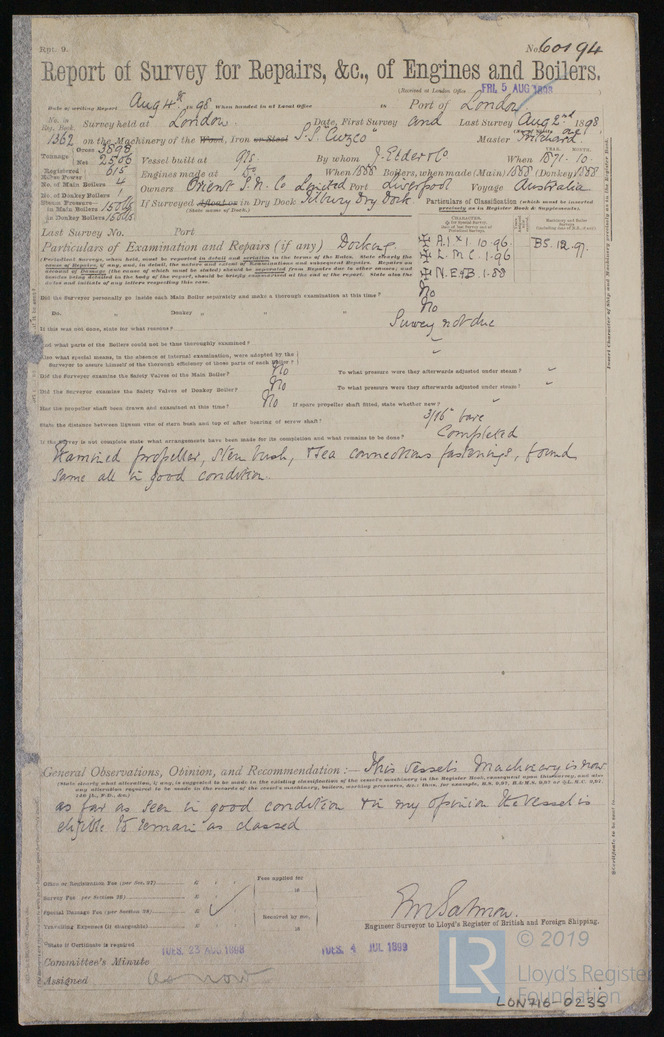 Rpt. 9.
No. 60194
Report of Survey for Repairs, &c., of Engines and Boilers.
(Received at London Office FRI. 5 AUG 1898
Date of writing Report Aug 4th 1898 When handed in at Local Office 18 Port of London
No. in Reg. Book. Survey held at London Date, First Survey and Last Survey Aug 2nd 1898
1362 on the Machinery of the Wood, Iron or Steel S.S. "Cuzco" Master Pritchard
Tonnage Gross 3898 Net 2506 Vessel built at Gls. By whom J. Elder & Co When 1871 - 10
Registered Horse Power 615 Engines made at do When 1888 Boilers, when made (Main) 1888 (Donkey) 1888
No. of Main Boilers 4 Owners Orient S.N. Co Limited Port Liverpool Voyage Australia
No. of Donkey Boilers 1
Steam Pressure in Main Boilers 150 lbs If Surveyed Afloat or in Dry Dock Tilbury Dry Dock
in Donkey Boilers (State name of Dock.)
Particulars of Classification (which must be inserted precisely as in Register Book & Supplements.
Last Survey No. Port
Particulars of Examination and Repairs (if any) Docking.
A.1 1.10.96
L.M.C. 1.96
N.E&B. 1.88
BS. 12.97.
Did the Surveyor personally go inside each Main Boiler separately and make a thorough examination at this time? No
Do. " Donkey " " " No
If this was not done, state for what reasons? Survey not due
And what parts of the Boilers could not be thus thoroughly examined? "
Also what special means, in the absence of internal examination, were adopted by the Surveyor to assure himself of the thorough efficiency of those parts of each Boiler? "
Did the Surveyor examine the Safety Valves of the Main Boiler? No To what pressure were they afterwards adjusted under steam? "
Did the Surveyor examine the Safety Valves of Donkey Boiler? No To what pressure were they afterwards adjusted under steam? "
Has the propeller shaft been drawn and examined at this time? No If spare propeller shaft fitted, state whether new? "
State the distance between lignum vitæ of stern bush and top of after bearing of screw shaft? 3/16" bare
If the Survey is not complete state what arrangements have been made for its completion and what remains to be done? Completed
Examined propeller, stern bush, & sea connections fastenings, found
same all in good condition.
General Observations, Opinion, and Recommendation:— This vessel's Machinery is now
as far as seen in good condition & in my opinion the vessel is
eligible to remain as classed
Office or Registration Fee (per Sec. 27) £
Survey Fee (per Section 28) £
Special Damage Fee (per Section 28) £
Travelling Expenses (if chargeable) £
Fees applied for 18
Received by me, 18
E.W. Salmon.
Engineer Surveyor to Lloyd's Register of British and Foreign Shipping.
State if Certificate is required
Committee's Minute TUES. 23 AUG 1898 TUES. 4 JUL 1899
Assigned as now
LR © 2019
Lloyd's Register
Foundation
LON716-0235